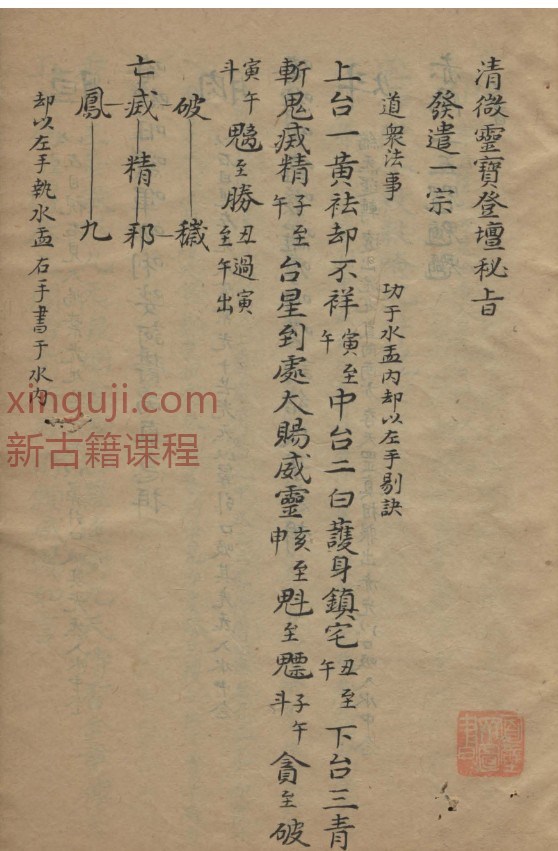 清微靈寶登壇秘旨
發遣一宗
道衆法事 功于水盂内却以左手剔訣
上台一黄祛却不祥寅至午中台二白護身鎮宅丑至午下台三青
斬鬼烕精子至午台星到處大賜威靈亥至申魁至魒子午斗貪至破
寅午斗魒至勝丑過寅至午出
破 穢
亡烕精邪
鳳 九
却以左手執水盂右手書于水内
xinguji.com
新古籍课程